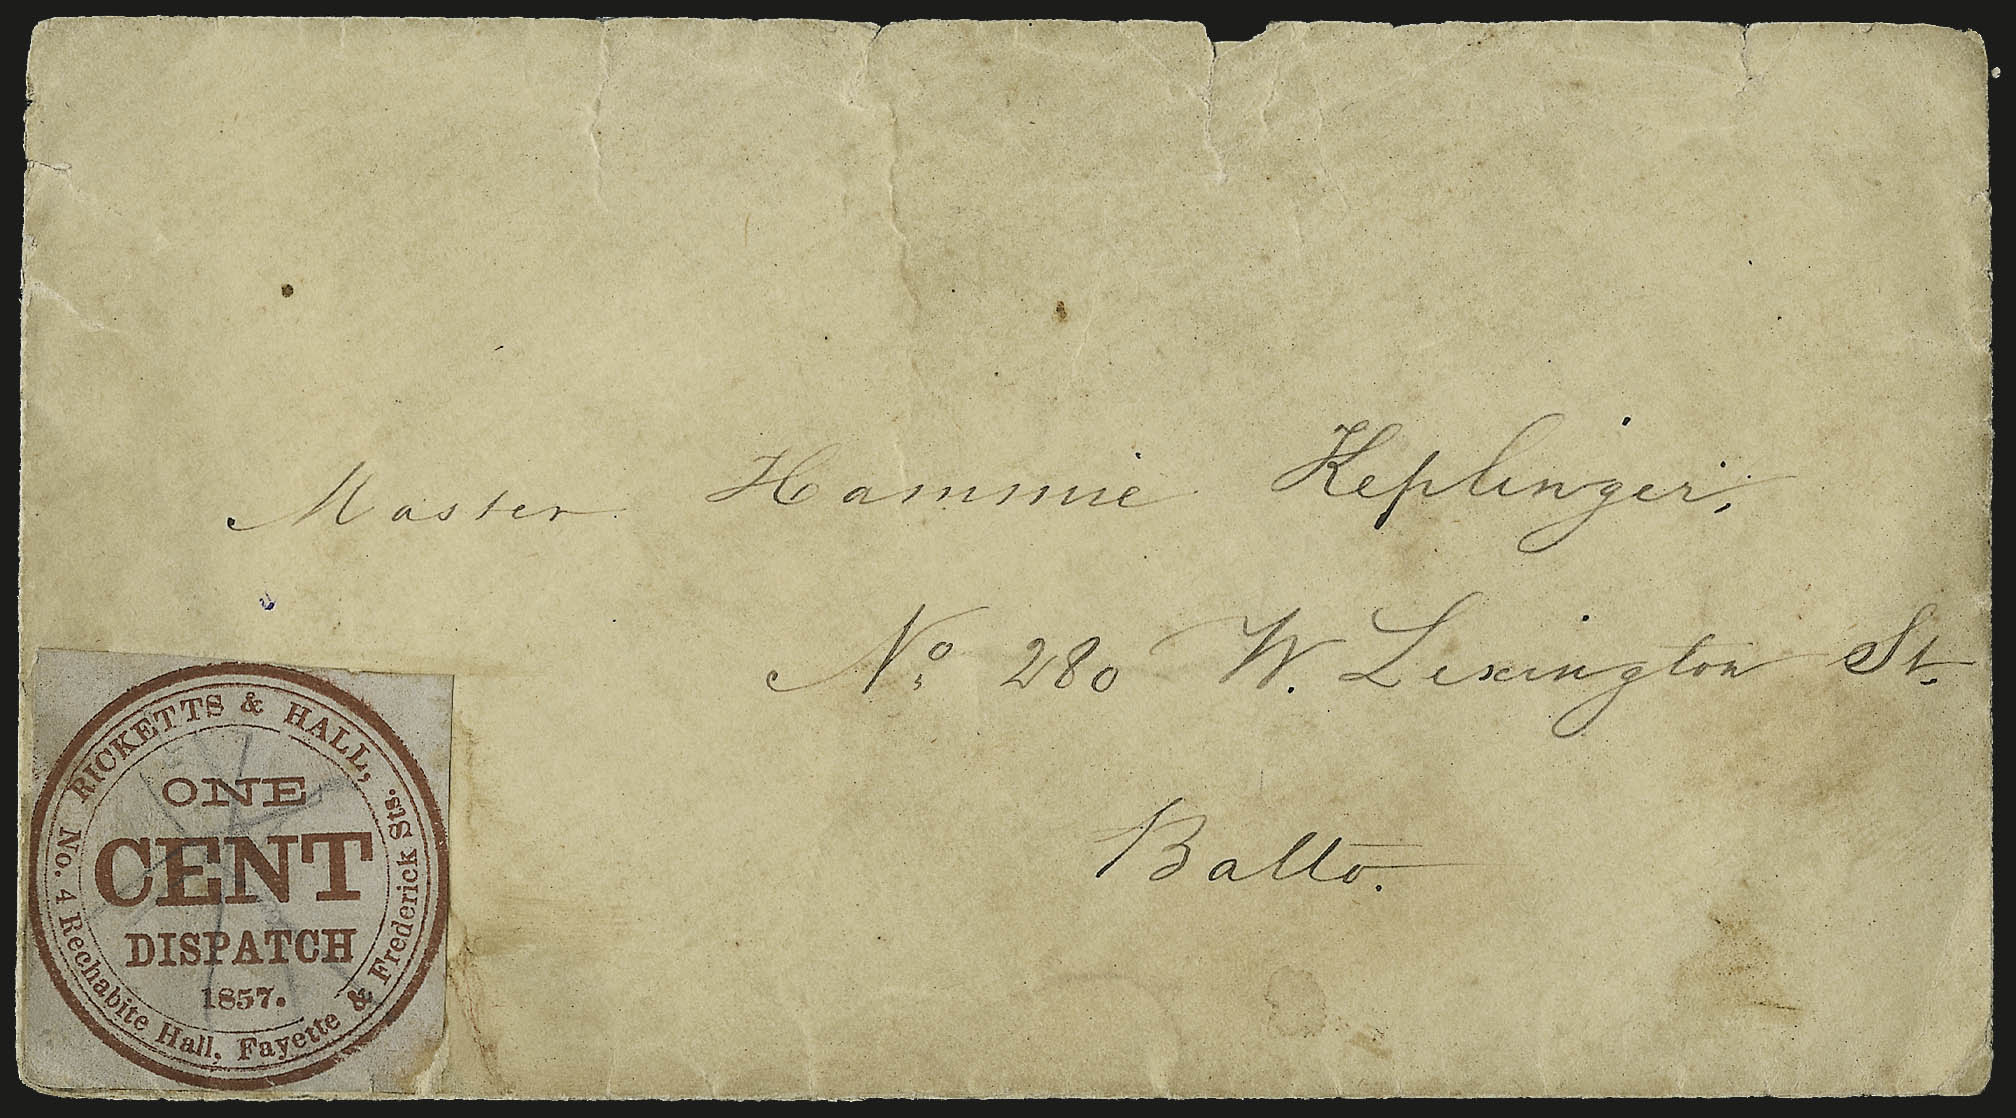 Master Hammie Keplinger,
No. 280 W. Lexington St.
Balto.
RICKETTS & HALL,
No. 4 Rechabite Hall, Fayette & Frederick Sts.
ONE
CENT
DISPATCH
1857.